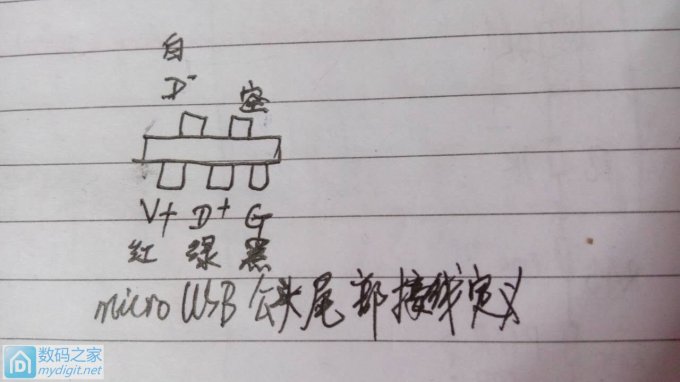 白
D-
空
V+ D+ G
红 绿 黑
micro USB 公头尾部接线定义
数码之家
mydigit.net